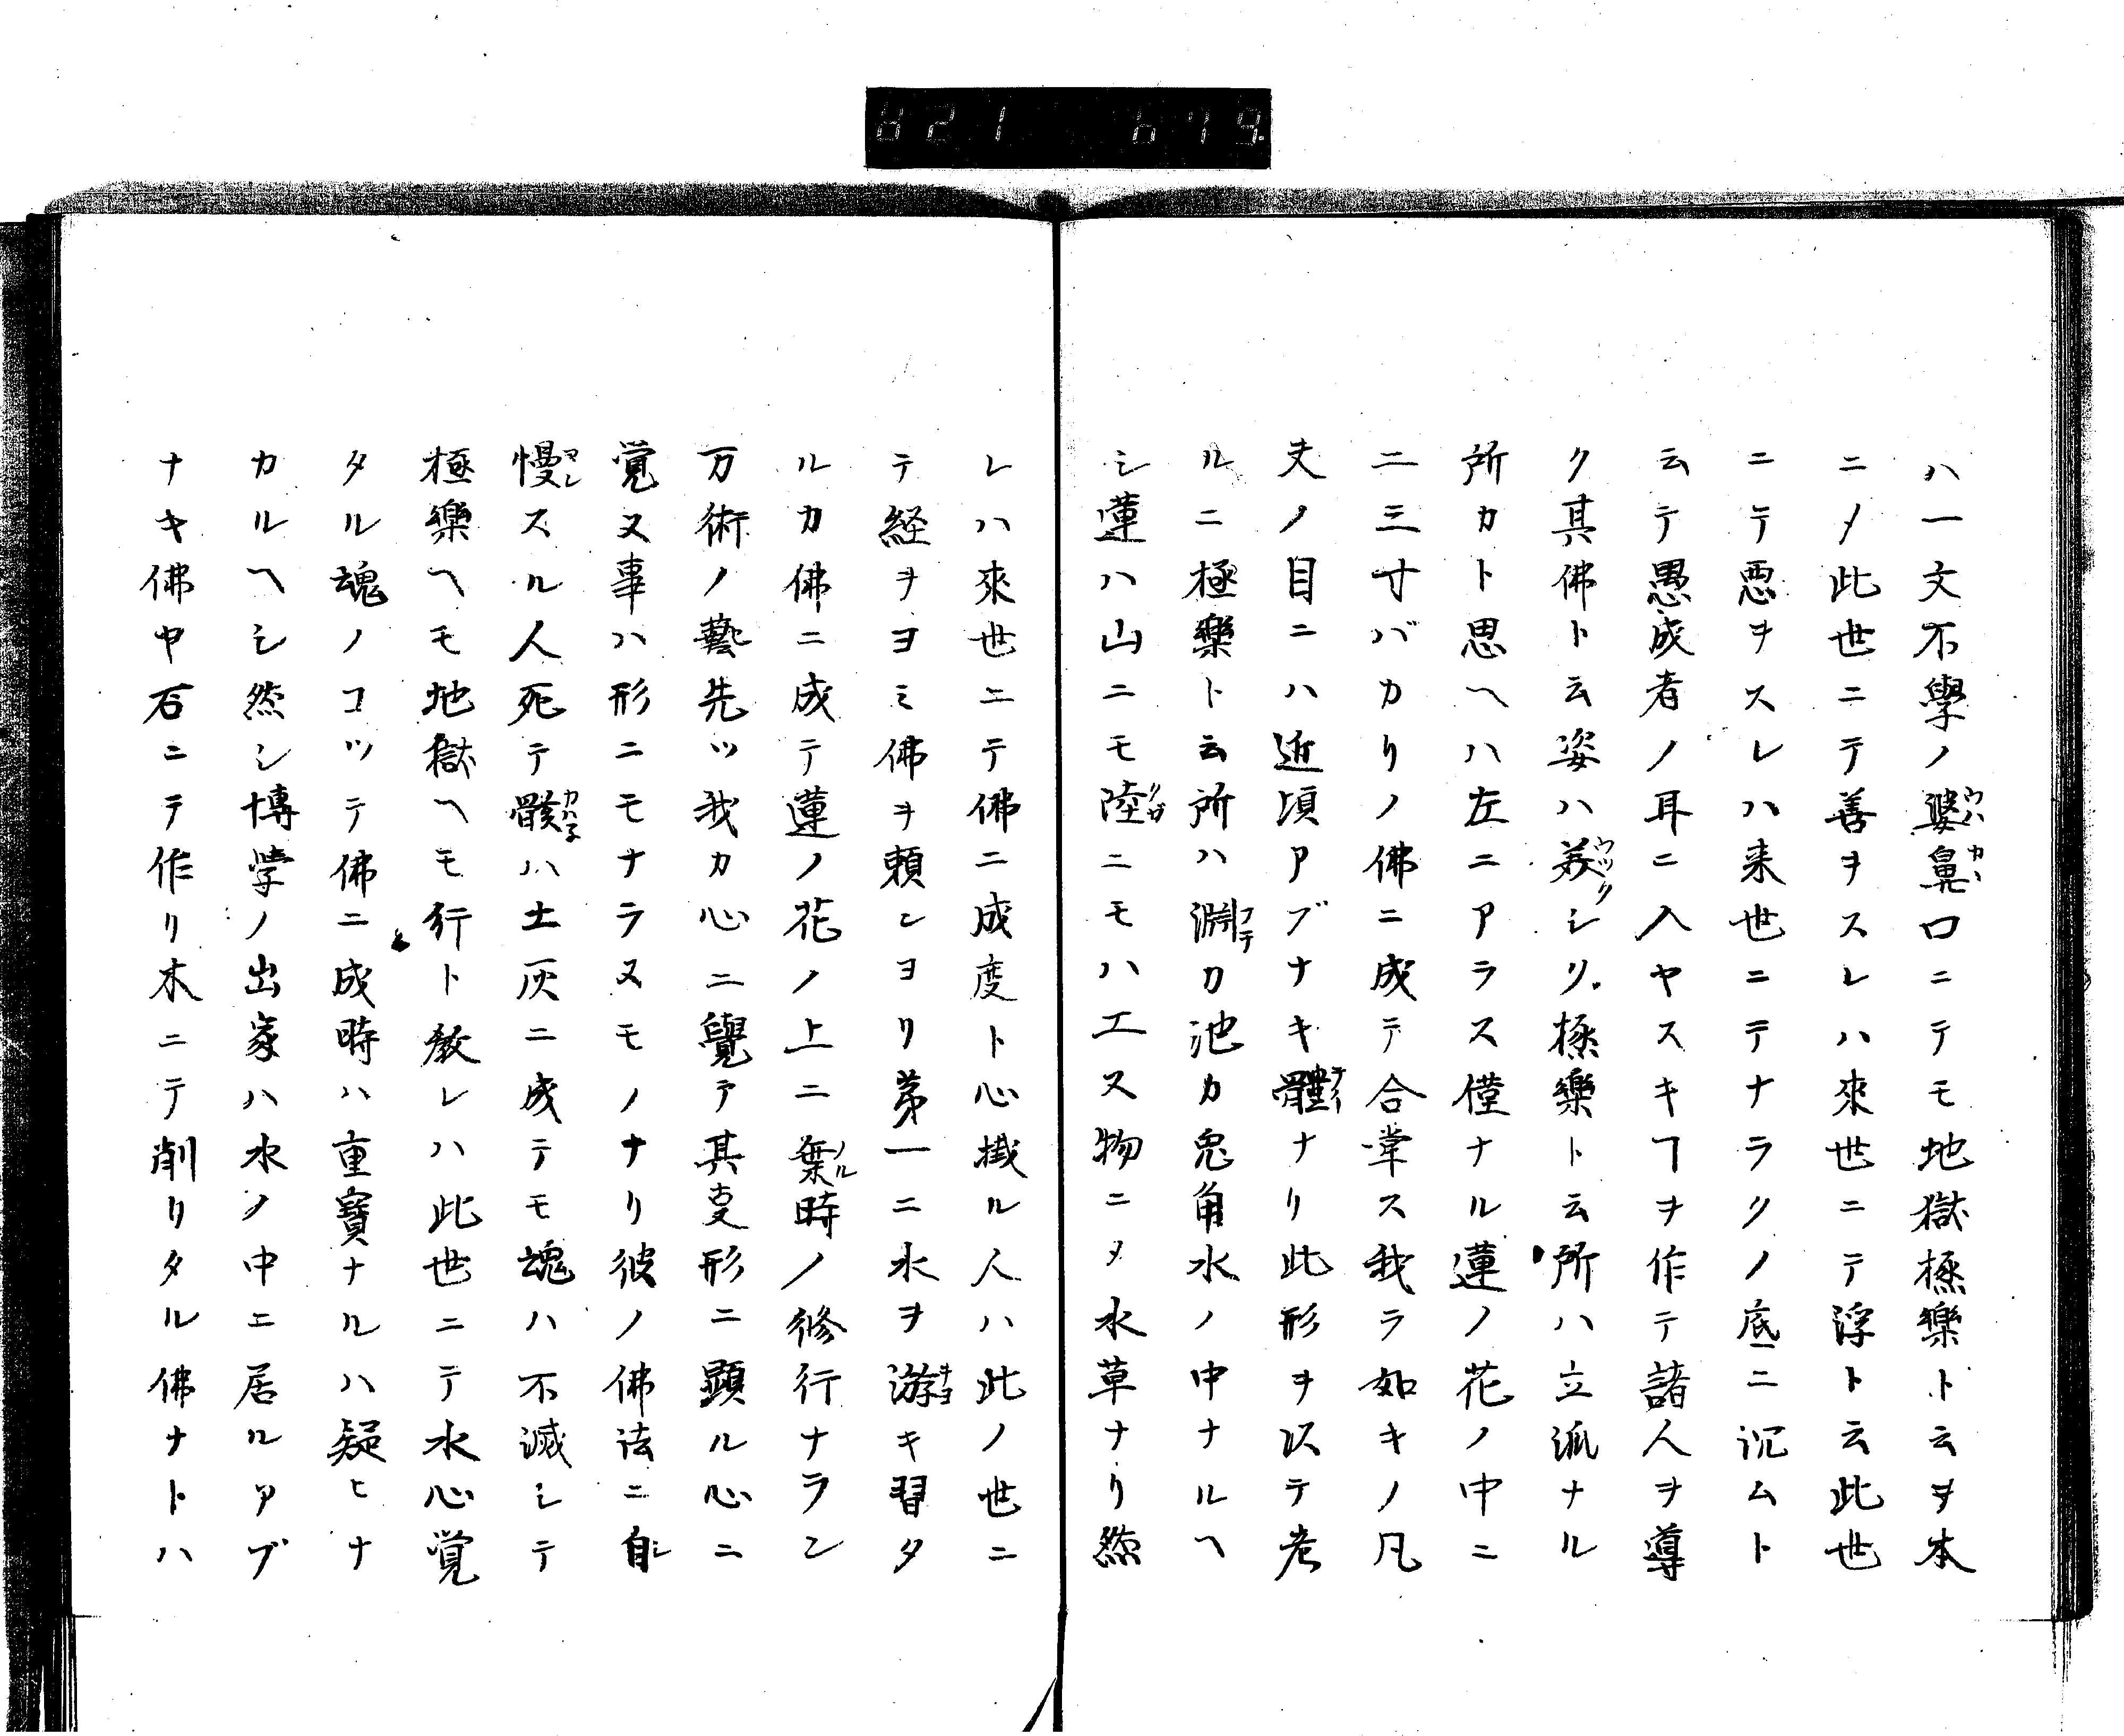 821 679
ハ一文不學ノ婆鼻口ニテモ地獄極樂ト云ヲ本
ニノ此世ニテ善ヲスレハ來世ニテ浮ト云此世
ニテ悪ヲスレハ来世ニテナラクノ底ニ沉ムト
云テ愚成者ノ耳ニ入ヤスキヿヲ作テ諸人ヲ導
ク其佛ト云姿ハ美シリ極樂ト云所ハ立派ナル
所カト思ヘハ左ニアラス僅ナル蓮ノ花ノ中ニ
二三寸バカリノ佛ニ成テ合掌ス我ラ如キノ凡
夫ノ目ニハ近頃アブナキ體ナリ此形ヲ以テ考
ルニ極樂ト云所ハ淵カ池カ鬼角水ノ中ナルヘ
シ蓮ハ山ニモ陸ニモハエヌ物ニメ水草ナリ然
レハ來世ニテ佛ニ成度ト心掛ル人ハ此ノ世ニ
テ経ヲヨミ佛ヲ頼レヨリ第一ニ水ヲ游キ習タ
ルカ佛ニ成テ蓮ノ花ノ上ニ乗時ノ修行ナラン
万術ノ藝先ツ我カ心ニ覺テ其叓形ニ顕ル心ニ
覚ヌ事ハ形ニモナラヌモノナリ彼ノ佛法ニ自
慢スル人死テ骸ハ土灰ニ成テモ魂ハ不滅シテ
極樂ヘモ地獄ヘモ行ト教レハ此世ニテ水心覚
タル魂ノコツテ佛ニ成時ハ重寶ナルハ疑ヒナ
カルヘシ然シ博学ノ出家ハ水ノ中ニ居ルアブ
ナキ佛ヤ石ニテ作リ木ニテ削リタル佛ナトハ